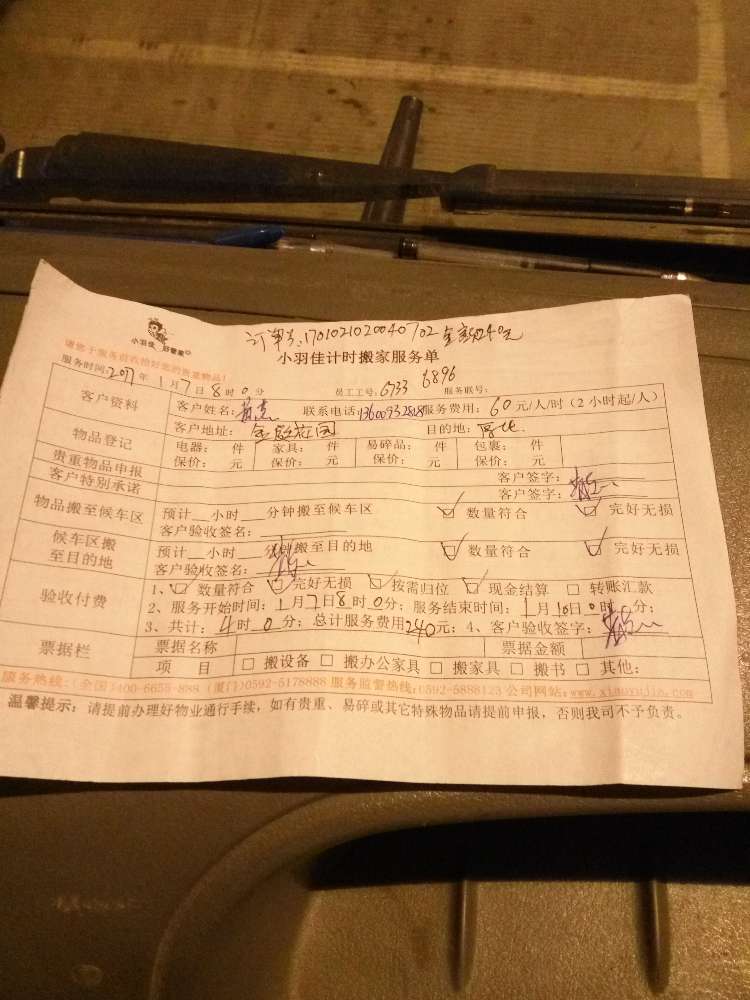 订单号:1701021020040702 金额240元
小羽佳 好管家
小羽佳计时搬家服务单
请您于服务前收拾好您的贵重物品!
服务时间:2017年1月7日8时0分 员工工号:6733 6896 服务联号:
客户资料 客户姓名: 联系电话: 服务费用:60元/人/时(2小时起/人)
客户地址: 花园 目的地:
物品登记 电器: 件 家具: 件 易碎品: 件 包裹: 件
保价: 元 保价: 元 保价: 元 保价: 元
贵重物品申报 客户签字:
客户特别承诺 客户签字:
物品搬至候车区 预计__小时__分钟搬至候车区 ☑数量符合 ☑完好无损
客户验收签名:
候车区搬至目的地 预计__小时__分钟搬至目的地 ☑数量符合 ☑完好无损
客户验收签名:
验收付费 1、☑数量符合 ☑完好无损 ☑按需归位 ☑现金结算 □转账汇款
2、服务开始时间:1月7日8时0分;服务结束时间:1月10日0时__分;
3、共计:4时0分;总计服务费用240元;4、客户验收签字:
票据栏 票据名称 票据金额
项 目 □搬设备 □搬办公家具 □搬家具 □搬书 □其他:
服务热线:(全国)400-6655-888 (厦门)0592-5178888 服务监督热线:0592-5888123 公司网站:www.xiaoyujia.com
温馨提示:请提前办理好物业通行手续,如有贵重、易碎或其它特殊物品请提前申报,否则我司不予负责。